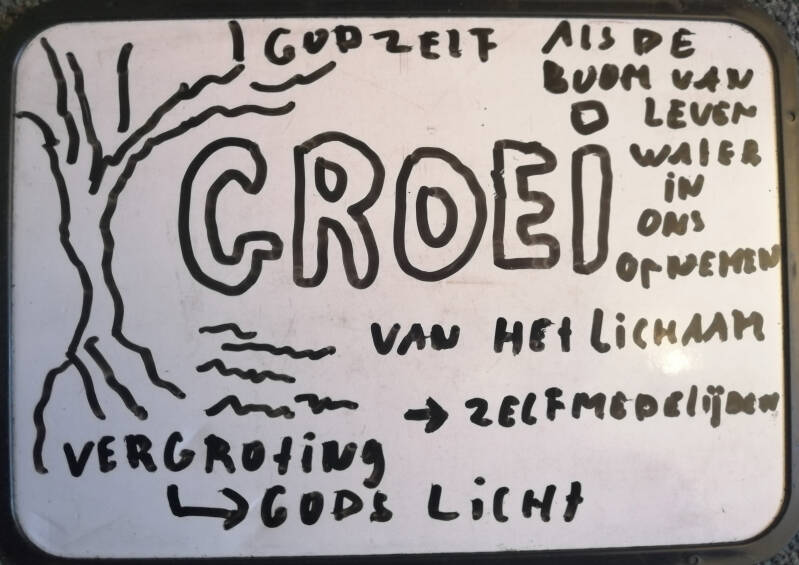 GODZELF
ALS DE
BOOM VAN
LEVEN
WATER
IN
ONS
OPNEMEN
GROEI
VAN HET LICHAAM
→ ZELFMEDELIJDEN
VERGROTING
↳ GODS LICHT